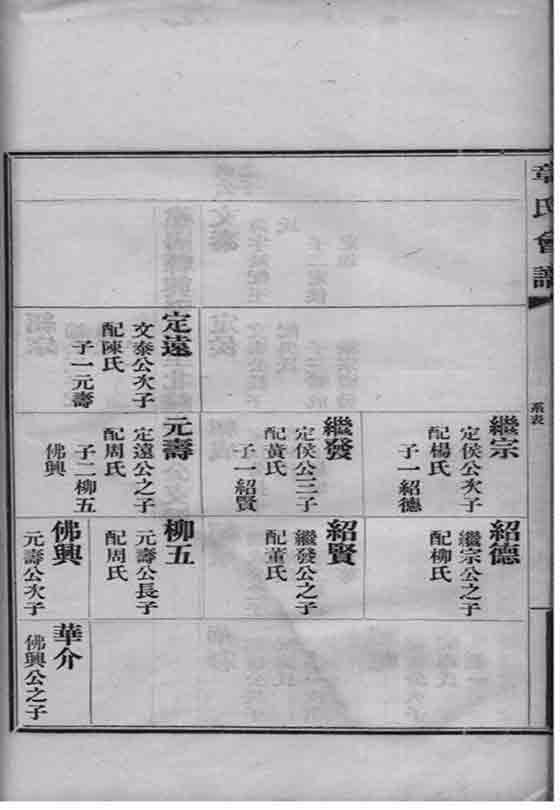 章氏會譜
系表
定遠
文泰公次子
配陳氏
子一元壽
繼宗
定侯公次子
配楊氏
子一紹德
繼發
定侯公三子
配黃氏
子一紹賢
元壽
定遠公之子
配周氏
子二柳五
佛興
紹德
繼宗公之子
配柳氏
紹賢
繼發公之子
配董氏
柳五
元壽公長子
配周氏
佛興
元壽公次子
華介
佛興公之子